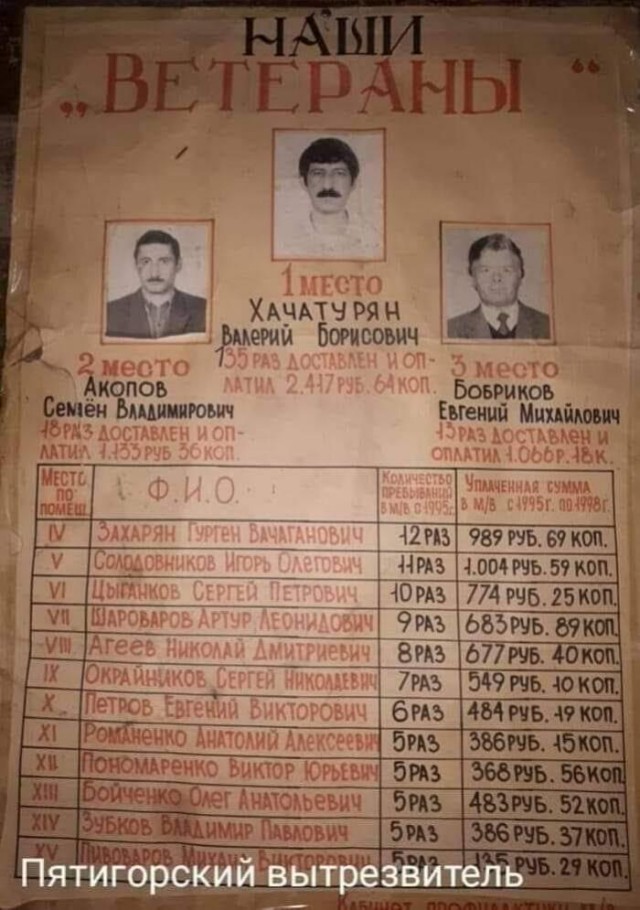 НАШИ
„ВЕТЕРАНЫ“
1 МЕСТО
ХАЧАТУРЯН
ВАЛЕРИЙ БОРИСОВИЧ
35 РАЗ ДОСТАВЛЕН И ОП-
ЛАТИЛ 2.417 РУБ. 64 КОП.
2 МЕСТО
АКОПОВ
СЕМЁН ВЛАДИМИРОВИЧ
18 РАЗ ДОСТАВЛЕН И ОП-
ЛАТИЛ 1.133 РУБ 36 КОП.
3 МЕСТО
БОБРИКОВ
ЕВГЕНИЙ МИХАЙЛОВИЧ
13 РАЗ ДОСТАВЛЕН И
ОПЛАТИЛ 1.066 Р. 18 К.
МЕСТО ПО ПОМЕЩ. Ф.И.О. КОЛИЧЕСТВО ПРЕБЫВАНИЙ В М/В С 1995г. УПЛАЧЕННАЯ СУММА В М/В С 1995Г. ПО 1998Г.
IV ЗАХАРЯН ГУРГЕН ВАЧАГАНОВИЧ 12 РАЗ 989 РУБ. 69 КОП.
V СОЛОДОВНИКОВ ИГОРЬ ОЛЕГОВИЧ 11 РАЗ 1.004 РУБ. 59 КОП.
VI ЦЫГАНКОВ СЕРГЕЙ ПЕТРОВИЧ 10 РАЗ 774 РУБ. 25 КОП.
VII ШАРОВАРОВ АРТУР ЛЕОНИДОВИЧ 9 РАЗ 683 РУБ. 89 КОП.
VIII АГЕЕВ НИКОЛАЙ ДМИТРИЕВИЧ 8 РАЗ 677 РУБ. 40 КОП.
IX ОКРАЙНИКОВ СЕРГЕЙ НИКОЛАЕВИЧ 7 РАЗ 549 РУБ. 10 КОП.
X ПЕТРОВ ЕВГЕНИЙ ВИКТОРОВИЧ 6 РАЗ 484 РУБ. 19 КОП.
XI РОМАНЕНКО АНАТОЛИЙ АЛЕКСЕЕВИЧ 5 РАЗ 386 РУБ. 15 КОП.
XII ПОНОМАРЕНКО ВИКТОР ЮРЬЕВИЧ 5 РАЗ 368 РУБ. 56 КОП
XIII БОЙЧЕНКО ОЛЕГ АНАТОЛЬЕВИЧ 5 РАЗ 483 РУБ. 52 КОП.
XIV ЗУБКОВ ВЛАДИМИР ПАВЛОВИЧ 5 РАЗ 386 РУБ. 37 КОП.
XV ПИВОВАРОВ МИХАИЛ ВИКТОРОВИЧ 5 РАЗ РУБ. 29 КОП.
Пятигорский вытрезвитель
КАБИНЕТ ПРОФИЛАКТИКИ